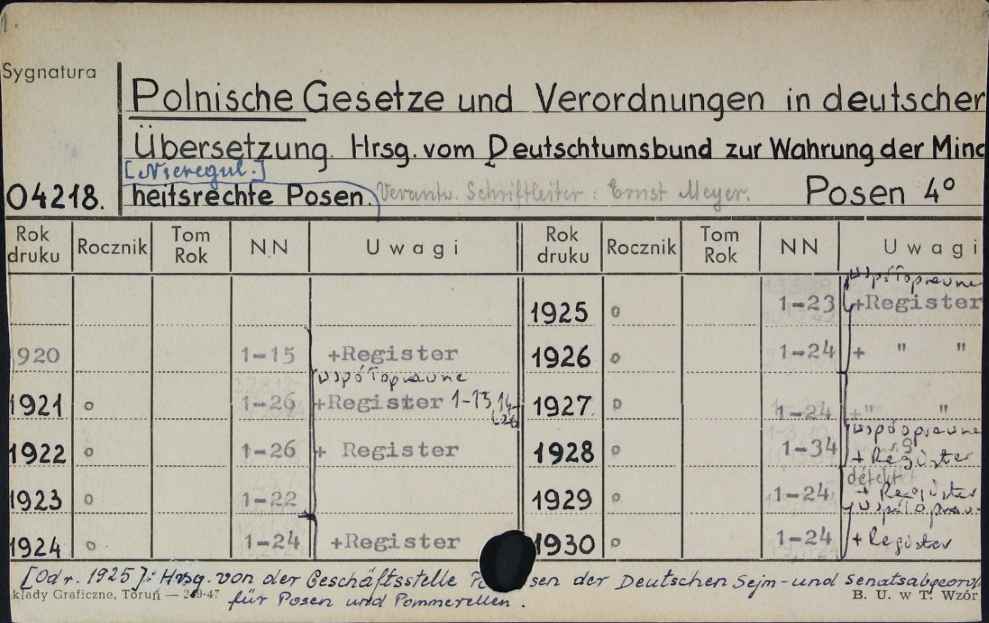 Sygnatura
Polnische Gesetze und Verordnungen in deutscher
Übersetzung. Hrsg. vom Deutschtumsbund zur Wahrung der Mind
[Nieregul.]
04218. heitsrechte Posen. Verantw. Schriftleiter: Ernst Meyer. Posen 4°
Rok druku Rocznik Tom Rok NN Uwagi Rok druku Rocznik Tom Rok NN Uwagi
współoprawne
1925 o 1-23 +Register
1920 1-15 +Register 1926 o 1-24 + " "
współoprawne
1921 o 1-26 +Register 1-13, 14-26 1927 o 1-24 +" "
współoprawne
1922 o 1-26 + Register 1928 o 1-34 + Register
1923 o 1-22 1929 o 1-24 + Register
współopraw.
1924 o 1-24 +Register 1930 o 1-24 +Register
[Od r. 1925]: Hrsg. von der Geschäftsstelle sen der Deutschen Sejm- und Senatsabgeord
kłady Graficzne, Toruń — 47 für Posen und Pommerellen. B. U. w T. Wzór